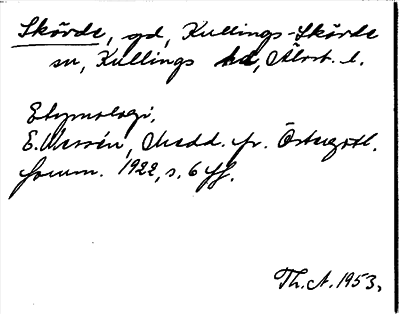 Skövde, gd, Kullings-Skövde
sn, Kullings hd, Älvsb. l.
Etymologi.
E. Wessén, Medd. fr. Östergötl.
fornm. 1922, s. 6 ff.
Th. A. 1953.